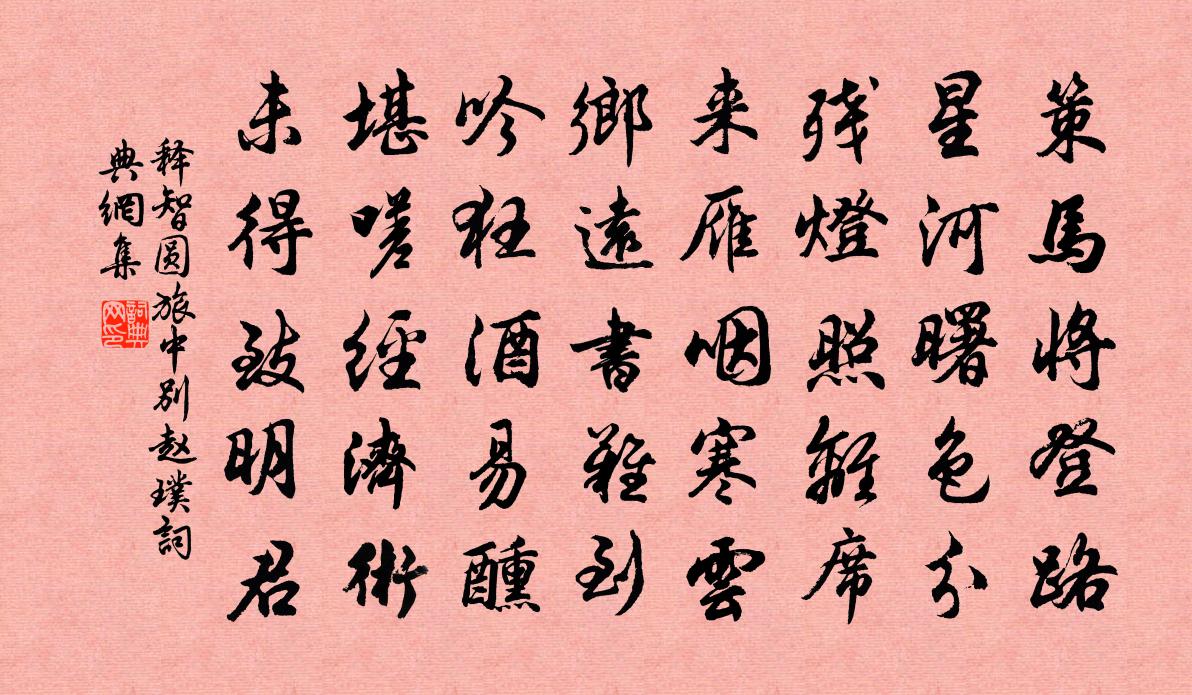 策馬将登路
星河曙色分
残燈照離席
来雁咽寒雲
鄉遠書難到
吟狂酒易醺
堪嗟經濟術
未得致明君
释智圆旅中别赵璞詞
典網集
詞典
网印